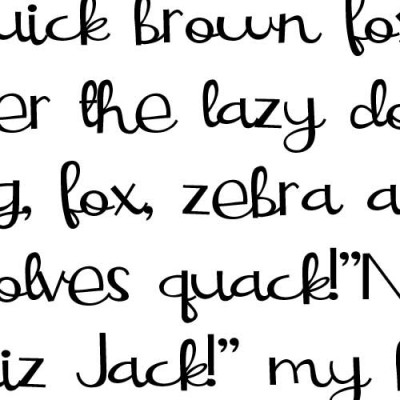 uick brown fox
er the lazy do
g, fox, zebra a
olves quack!"N
iz Jack!" my